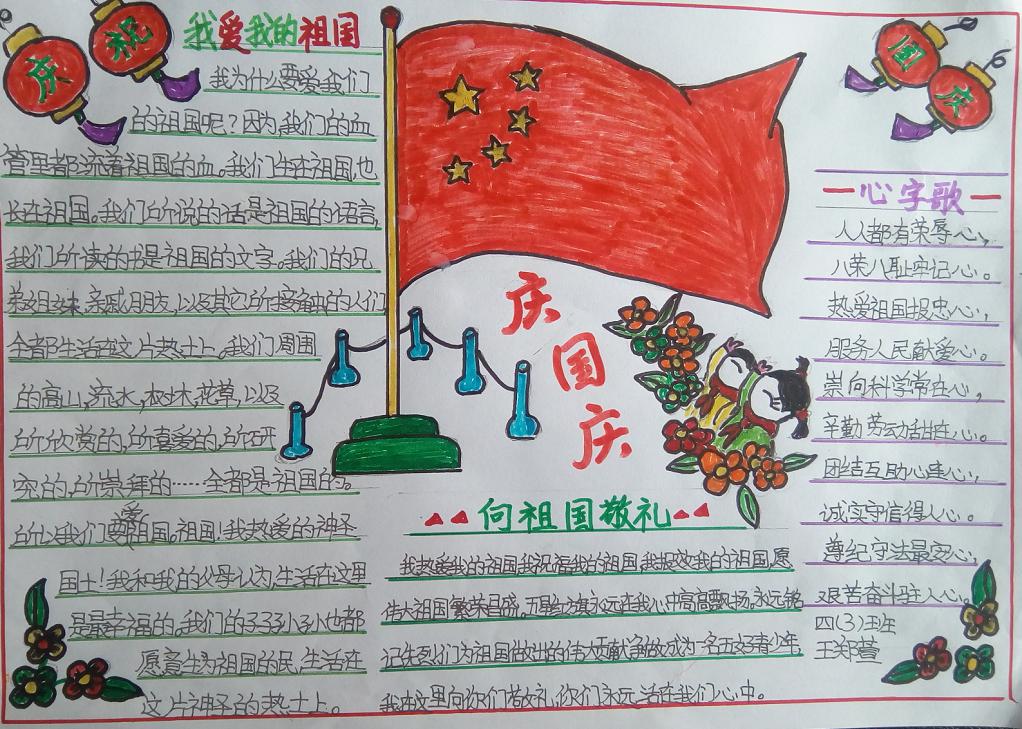 庆祝
国庆
我爱我的祖国
我为什么要爱我们
的祖国呢？因为，我们的血
管里都流着祖国的血。我们生在祖国，也
长在祖国。我们所说的话是祖国的语言，
我们所读的书是祖国的文字。我们的兄
弟姐妹、亲戚朋友，以及其它所接触的人们
全都生活在这片热土上。我们周围
的高山，流水，树木，花草，以及
所欣赏的，所喜爱的，所研
究的，所崇拜的……全都是祖国的。
所以我们要爱祖国。祖国！我热爱的神圣
国土！我和我的父母认为，生活在这里
是最幸福的。我们的子子孙孙也都
愿意生为祖国的民，生活在
这片神圣的热土上。
庆
国
庆
向祖国敬礼
我热爱我的祖国，我祝福我的祖国，我报效我的祖国，愿
伟大祖国繁荣昌盛。五星红旗永远在我心中高高飘扬。永远铭
记先烈们为祖国做出的伟大贡献，争做成为一名五好青少年，
我在这里向你们敬礼，你们永远活在我们心中。
一心字歌一
人人都有荣辱心，
八荣八耻牢记心。
热爱祖国报忠心，
服务人民献爱心。
崇向科学常在心，
辛勤劳动话在心。
团结互助心连心，
诚实守信得人心。
尊纪守法最安心，
艰苦奋斗驻人心。
四(3)班
王郑萱